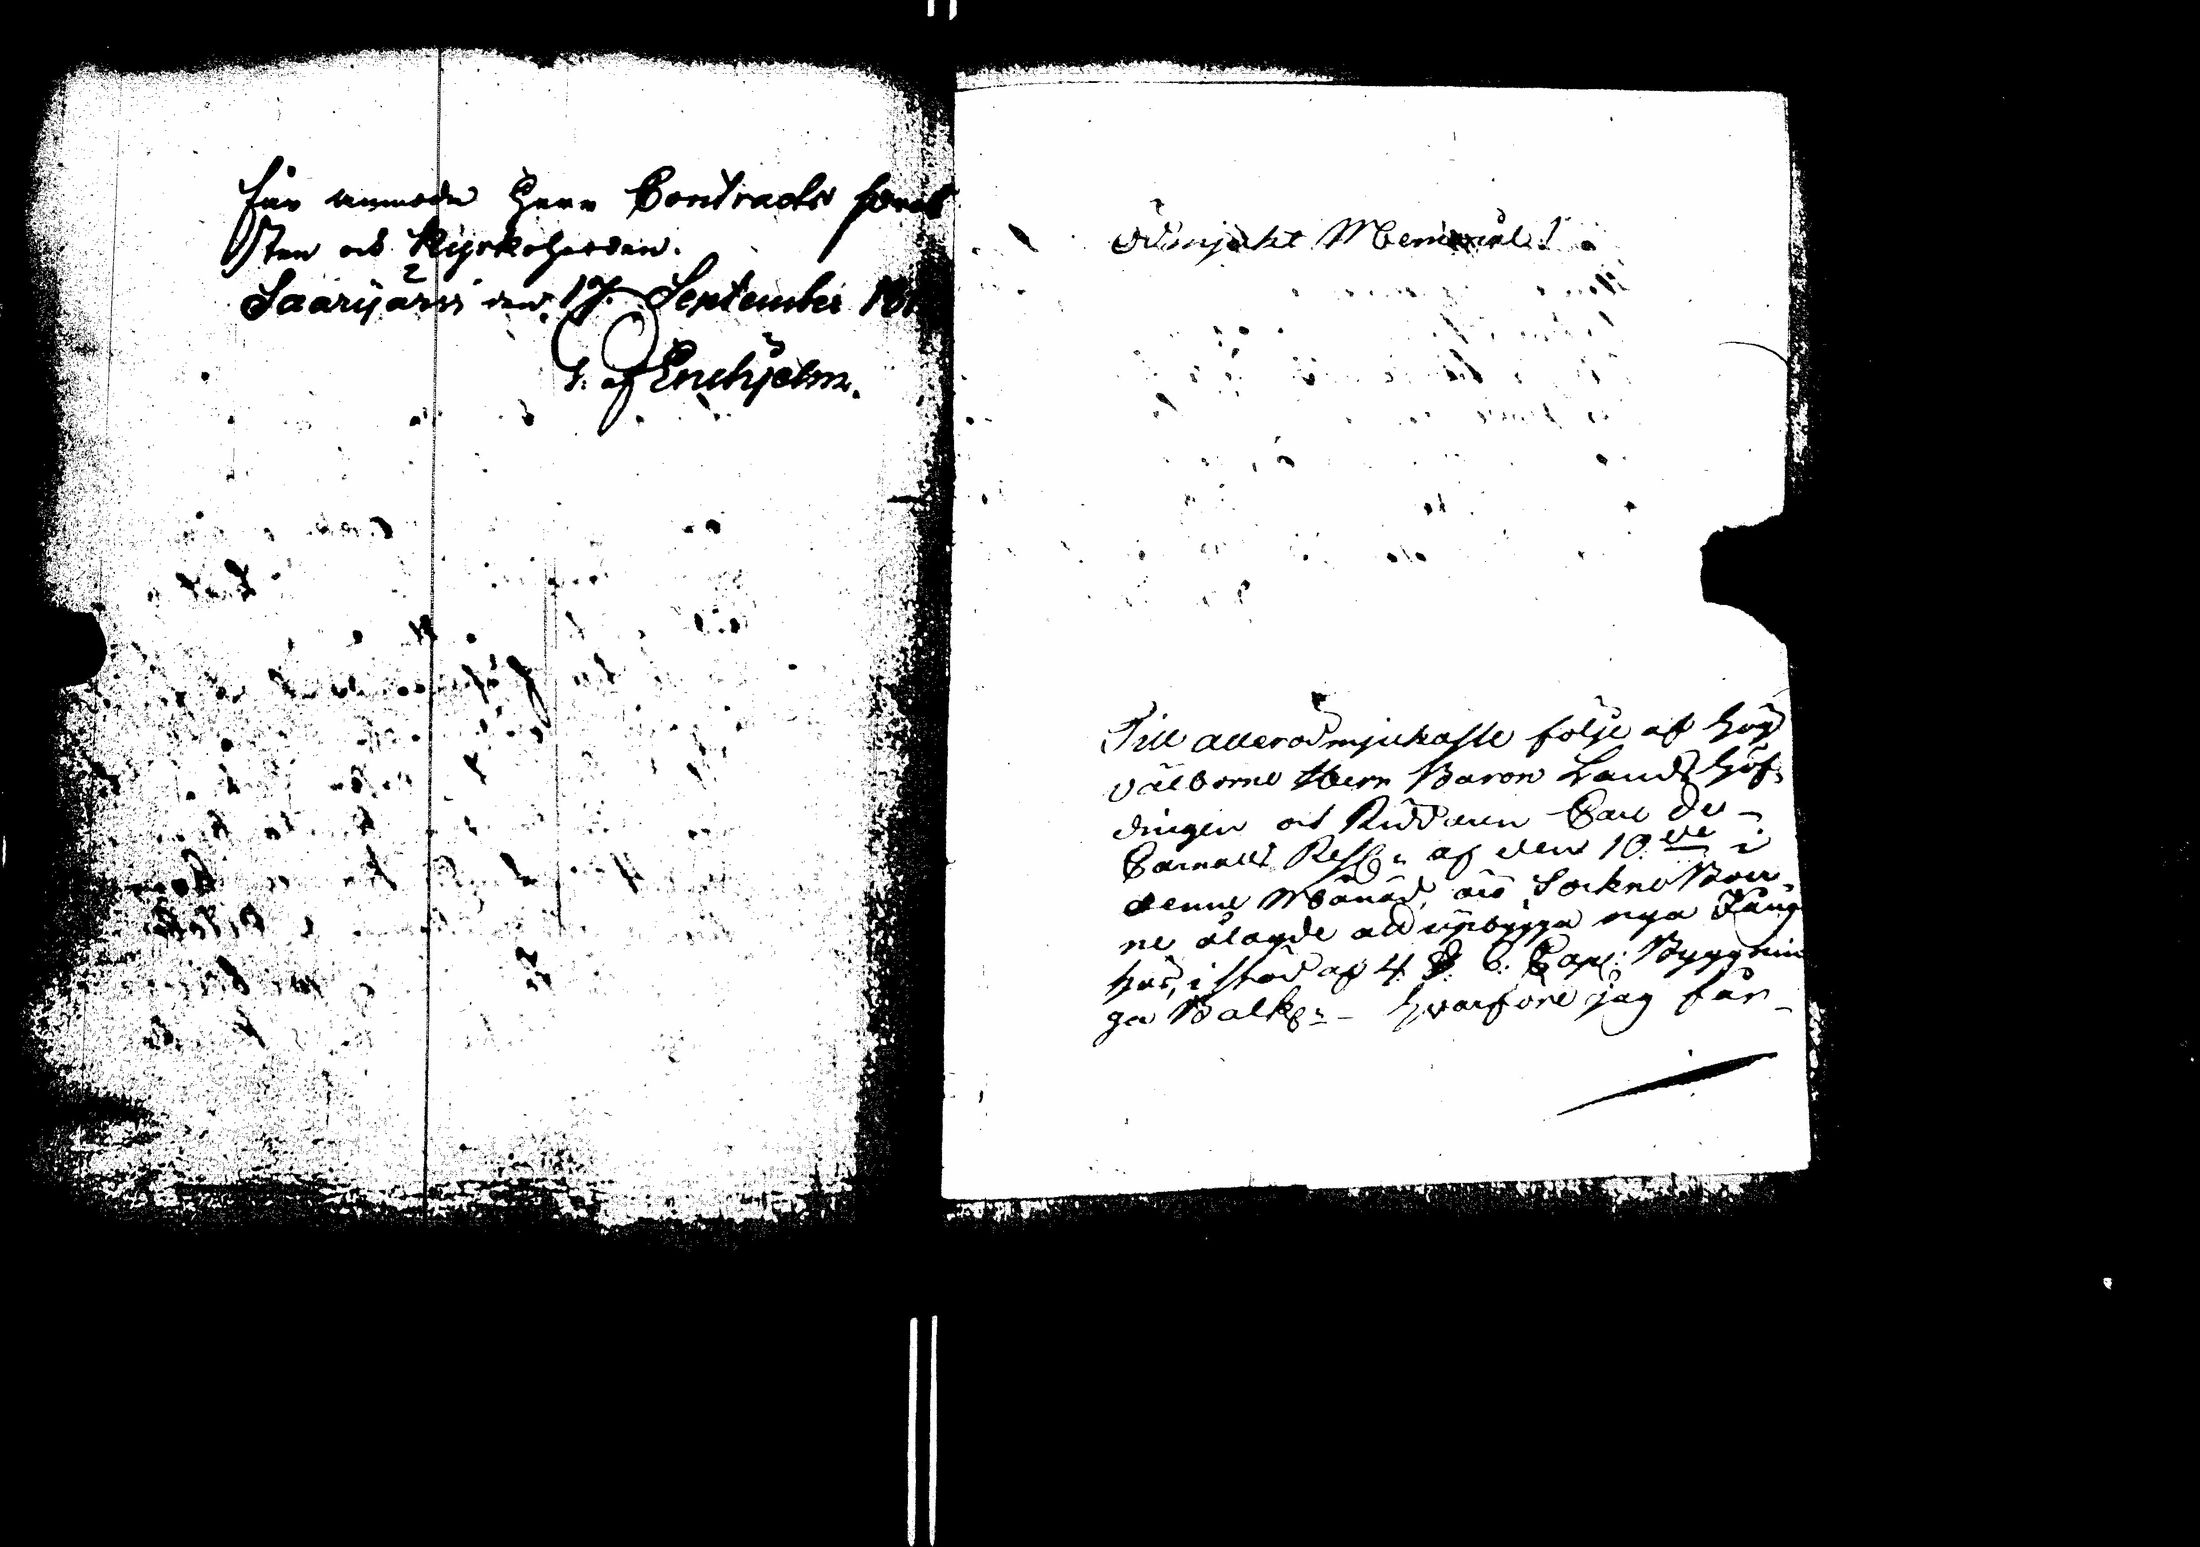 får anmoda Herr Contracts Prost
sten och Kyrkoherden.
Saarijärvi den 17. September 181
G. af Enehjelm.
Ödmjukt Memorial!
Till allerödmjukaste följe af Hög
välborne Herr Baron Lands Höf-
dingen och Riddaren Carl de
Carnalls Resl: af den 10de i
denne Månad, äro Sockne Boer-
ne ålagde att upbygga nya Fång
hus, i stad af 4. Capl: Byggnin
ga Balk: - Hvarföre jag får